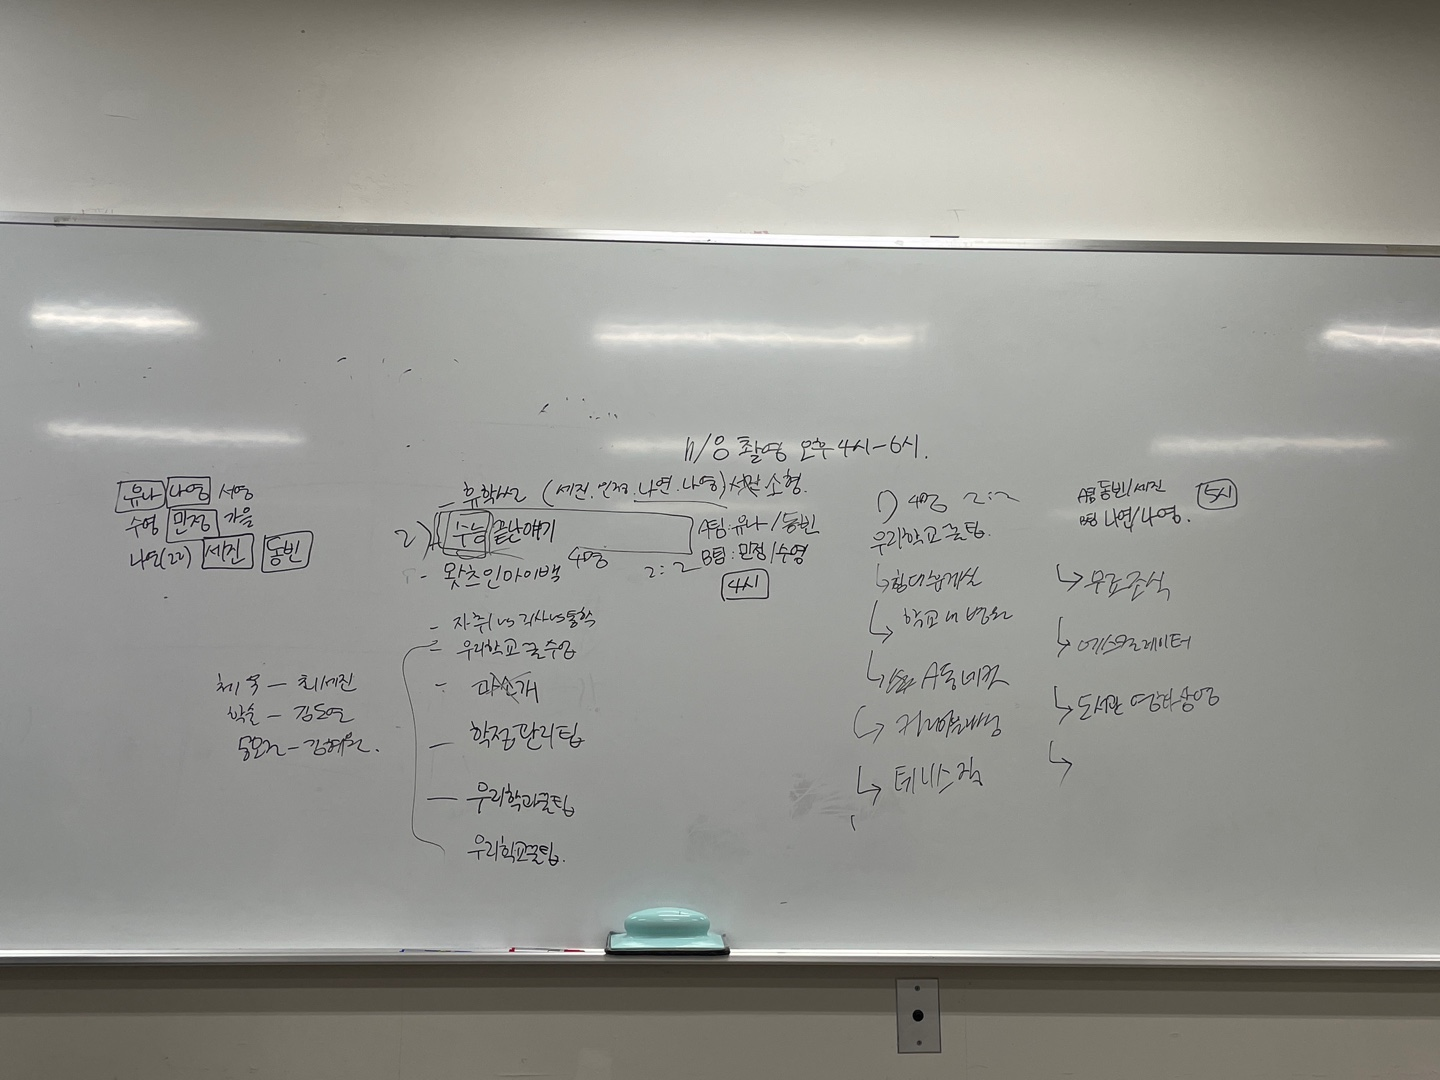 11/8 촬영 오후 4시-6시.
유나 나영 서영
수영 민정 가을
나연(22) 세진 동빈
체육 - 최세진
학술 - 김도연
홍보 - 김혜원.
휴학썰 (세진. 민정. 나연. 나영) 소형.
2) 수능 끝난얘기
4명 2:2
A팀: 유나/동빈
B팀: 민정/수영
4시
- 왓츠인마이백
- 자취 vs 긱사 vs 통학
- 우리학교 꿀수업
- 과소개
- 학점관리팁
- 우리학과꿀팁
우리학교꿀팁.
1) 4명 2:2
우리학교꿀팁.
↳ 학교 내 병원
↳ A동
↳ 테니스장
A팀 동빈/세진
B팀 나연/나영.
5시
↳ 무료조식
↳ 에스컬레이터
↳ 도서관 영화상영
↳